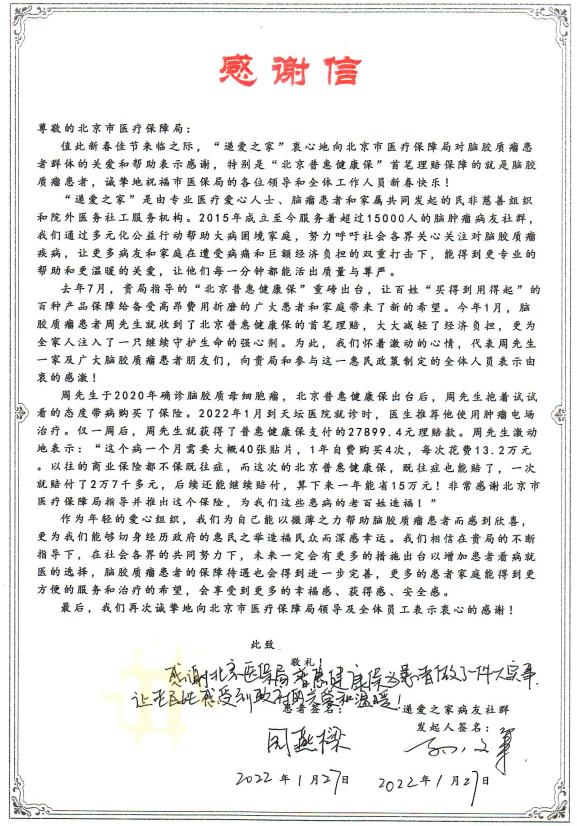 感谢信
尊敬的北京市医疗保障局：
值此新春佳节来临之际，“递爱之家”衷心地向北京市医疗保障局对脑胶质瘤患
者群体的关爱和帮助表示感谢，特别是“北京普惠健康保”首笔理赔保障的就是脑胶
质瘤患者，诚挚地祝福市医保局的各位领导和全体工作人员新春快乐！
“递爱之家”是由专业医疗爱心人士、脑瘤患者和家属共同发起的民非慈善组织
和院外医务社工服务机构。2015年成立至今服务着超过15000人的脑肿瘤病友社群，
我们通过多元化公益行动帮助大病困境家庭，努力呼吁社会各界关心关注对脑胶质瘤
疾病，让更多病友和家庭在遭受病痛和巨额经济负担的双重打击下，能得到更专业的
帮助和更温暖的关爱，让他们每一分钟都能活出质量与尊严。
去年7月，贵局指导的“北京普惠健康保”重磅出台，让百姓“买得到用得起”的
百种产品保障给备受高昂费用折磨的广大患者和家庭带来了新的希望。今年1月，脑
胶质瘤患者周先生就收到了北京普惠健康保的首笔理赔，大大减轻了经济负担，更为
全家人注入了一只继续守护生命的强心剂。为此，我们怀着激动的心情，代表周先生
一家及广大脑胶质瘤患者朋友们，向贵局和参与这一惠民政策制定的全体人员表示由
衷的感激！
周先生于2020年确诊脑胶质母细胞瘤，北京普惠健康保出台后，周先生抱着试试
看的态度带病购买了保险。2022年1月到天坛医院就诊时，医生推荐他使用肿瘤电场
治疗。仅一周后，周先生就获得了普惠健康保支付的27899.4元理赔款。周先生激动
地表示：“这个病一个月需要大概40张贴片，1年自费购买4次，每次花费13.2万元
。以往的商业保险都不保既往症，而这次的北京普惠健康保，既往症也能赔了，一次
就赔付了2万7千多元，后续还能继续赔付，算下来一年能省15万元！非常感谢北京市
医疗保障局指导并推出这个保险，为我们这些患病的老百姓造福！”
作为年轻的爱心组织，我们为自己能以微薄之力帮助脑胶质瘤患者而感到欣喜，
更为我们能够切身经历政府的惠民之举造福民众而深感幸运。我们相信在贵局的不断
指导下，在社会各界的共同努力下，未来一定会有更多的措施出台以增加患者看病就
医的选择，脑胶质瘤患者的保障待遇也会得到进一步完善，更多的患者家庭能得到更
方便的服务和治疗的希望，会享受到更多的幸福感、获得感、安全感。
最后，我们再次诚挚地向北京市医疗保障局领导及全体员工表示衷心的感谢！
此致
敬礼！
感谢北京医保局普惠健康保为患者做了一件大实事，
让老百姓感受到政府的关爱和温暖！
患者签名： 递爱之家病友社群
发起人签名：
周燕樑
2022年1月27日 2022年1月27日